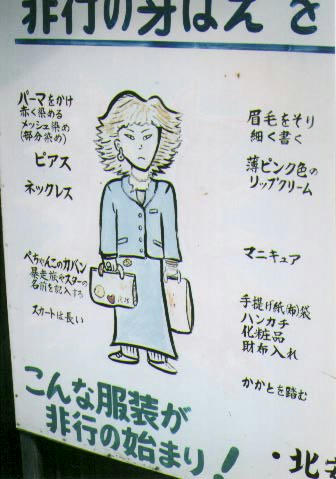 非行の芽ばえ を
パーマをかけ
赤く染める
メッシュ染め
(部分染め)
ピアス
ネックレス
ぺちゃんこのカバン
暴走族やスターの
名前を記入する
スカートは長い
眉毛をそり
細く書く
薄ピンク色の
リップクリーム
マニキュア
手提げ紙(布)袋
ハンカチ
化粧品
財布入れ
かかとを踏む
こんな服装が
非行の始まり!
・北